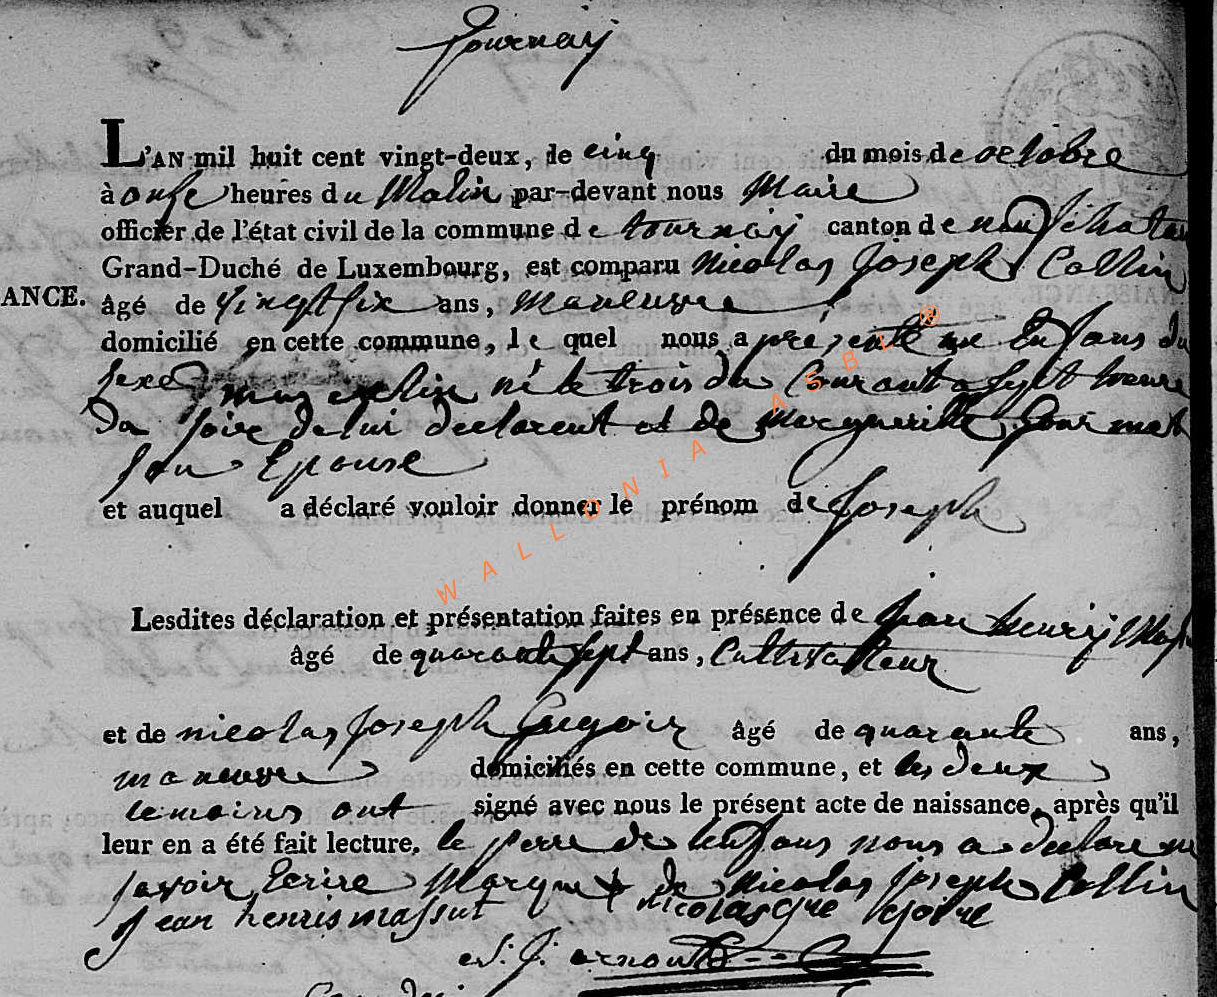 tournaij
L'AN mil huit cent vingt-deux, le cinq du mois de octobre
à onse heures du Matin par-devant nous Maire
officier de l'état civil de la commune de tournaij canton de neufchateau
Grand-Duché de Luxembourg, est comparu nicolas Joseph Collin
ANCE.
âgé de vingt six ans, maneuvre
domicilié en cette commune, le quel nous a présenté un Enfans du
sexe masculin né le trois du Courant a sept heure
du soire de lui declarent et de margueritte Gourmet
son Epouse
et auquel a déclaré vouloir donner le prénom de Joseph
WALLONIA ASBL ®
Lesdites déclaration et présentation faites en présence de jean henrij
âgé de quarante sept ans, Cultivatteur
et de nicolas Joseph Gregoir âgé de quarante ans,
maneuvre domiciliés en cette commune, et les deux
temoins ont signé avec nous le présent acte de naissance, après qu'il
leur en a été fait lecture, le perre de lenfans nous a declare ne
savoir Ecrire Marque + de Nicolas Joseph Collin
jean henri massut nicolas gregoire
N. J. arnould